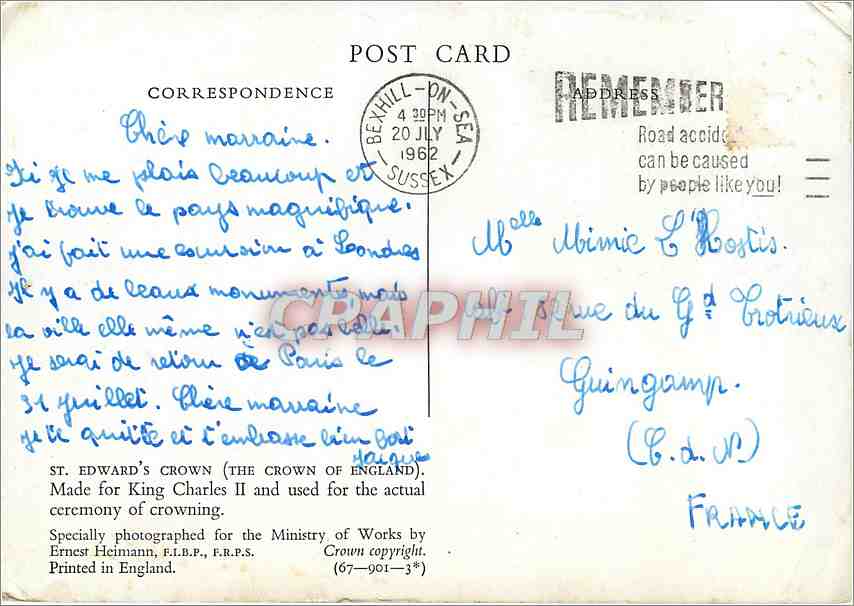 POST CARD
CORRESPONDENCE
ADDRESS
BEXHILL-ON-SEA
4 30PM
20 JLY
1962
SUSSEX
REMEMBER
Road accid
can be caused
by people like you!
Chère marraine.
Ici je me plais beaucoup et
je trouve le pays magnifique.
j'ai fait une excursion à Londres
Il y a de beaux monuments, mais
la ville elle même n'est pas belle.
Je serai de retour de Paris le
31 Juillet. Chère marraine
je te quitte et t'embrasse bien fort
Melle Mimie L'Hostis.
rue du Gd Trotrieux
Guingamp.
(C.d.N)
FRANCE
CPAPHIL
ST. EDWARD'S CROWN (THE CROWN OF ENGLAND).
Made for King Charles II and used for the actual
ceremony of crowning.
Specially photographed for the Ministry of Works by
Ernest Heimann, F.I.B.P., F.R.P.S. Crown copyright.
Printed in England. (67—901—3*)